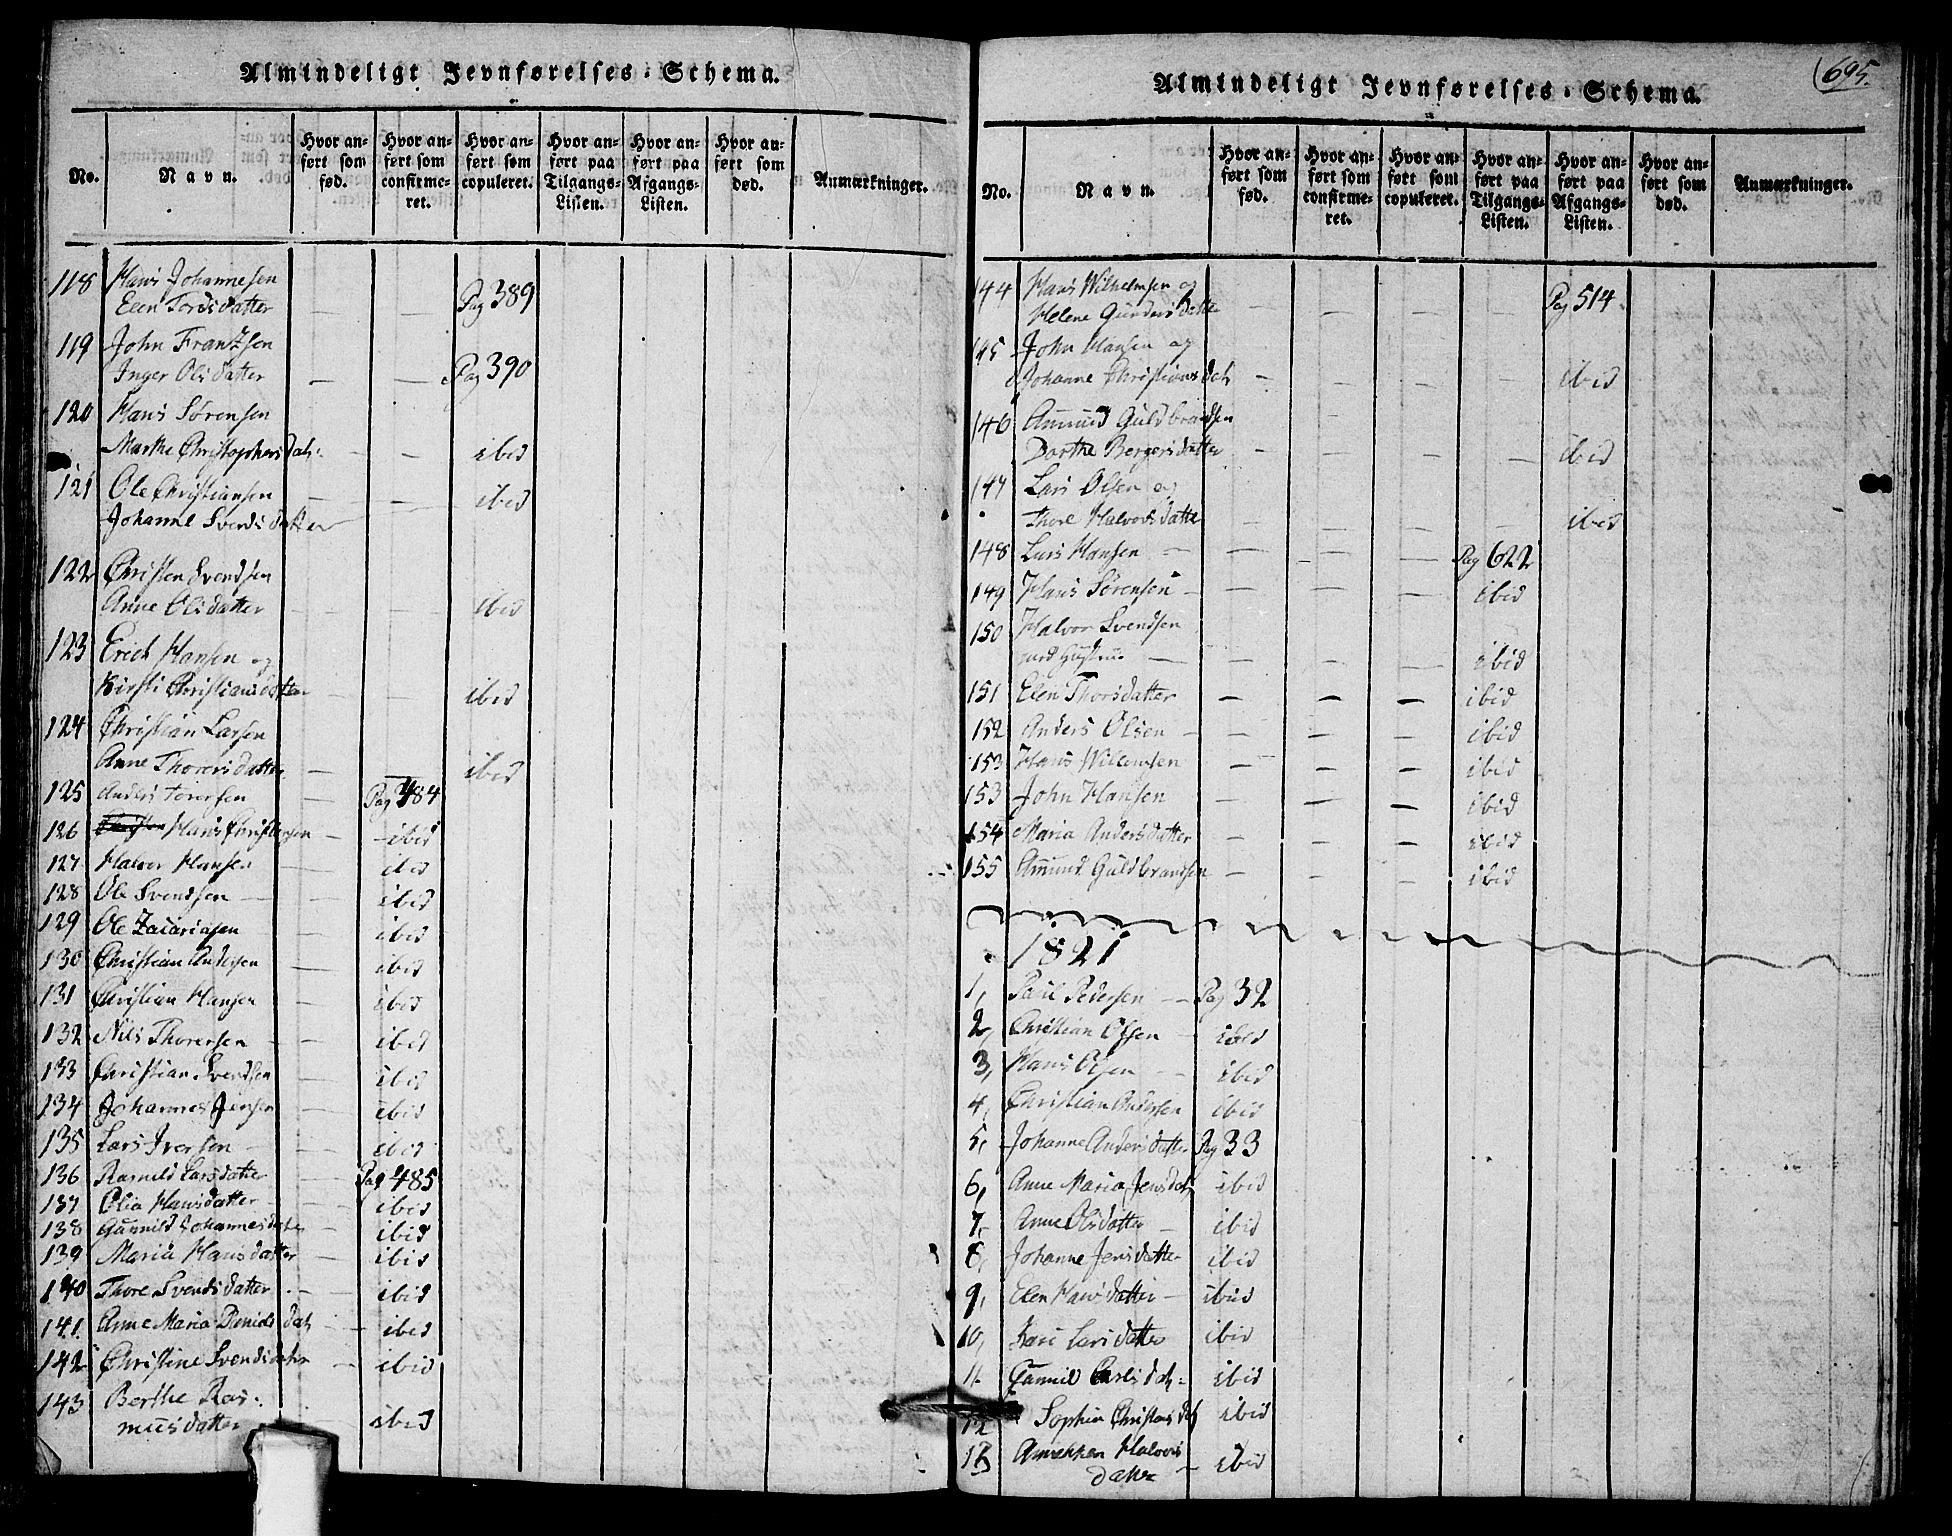 Almindeligt Jevnførelses-Schema.
No.
Navn.
Hvor anført som fød.
Hvor anført som confirmeret.
Hvor anført som copuleret.
Hvor anført paa Tilgangs-Listen.
Hvor anført paa Afgangs-Listen.
Hvor anført som død.
Anmærkninger.
118 Hans Johannesen
Elen Tordsdatter — — Pag 389
119 John Frantzsen
Inger Olsdatter — — Pag 390
120 Hans Sørensen
Marthe Christophersdatr: — — ibid
121 Ole Christiansen — — ibid
Johanne Svendsdatter
122 Christen Svendsen
Anne Olsdatter — — ibid
123 Erich Hansen og
Kirsti Christiansdatter — — ibid
124 Christian Larsen
Anne Thorersdatter — — ibid
125 Anders Torersen — Pag 484
126 Hans Christensen — ibid
127 Halvor Hansen — ibid
128 Ole Svendsen — ibid
129 Ole Zacariasen — ibid
130 Christian Andersen — ibid
131 Christian Hansen — ibid
132 Nils Thorersen — ibid
133 Christian Svendsen — ibid
134 Johannes Jensen — ibid
135 Lars Iversen — ibid
136 Ragnild Larsdatter — Pag 485
137 Olia Hansdatter — ibid
138 Gunnild Johannesdatr — ibid
139 Maria Hansdatter — ibid
140 Thore Svendsdatter — ibid
141 Anne Maria Danielsdatr — ibid
142 Christine Svendsdatr — ibid
143 Berthe Ras-
musdatter — ibid
695.
Almindeligt Jevnførelses-Schema.
No.
Navn.
Hvor anført som fød.
Hvor anført som confirmeret.
Hvor anført som copuleret.
Hvor anført paa Tilgangs-Listen.
Hvor anført paa Afgangs-Listen.
Hvor anført som død.
Anmærkninger.
144 Hans Wilhelmsen og
Helene Gundersdatter — — — — Pag 514
145 John Hansen og
Johanne Christiansdatr — — — — ibid
146 Amund Guldbrandsen
Dorthe Bergersdatter — — — — ibid
147 Lars Olsen og
Thore Halvorsdatter — — — — ibid
148 Lars Hansen — — — Pag 622
149 Hans Sørensen — — — ibid
150 Halvor Svendsen
med Hustru — — — ibid
151 Elen Thorsdatter — — — ibid
152 Anders Olsen — — — ibid
153 Hans Wilemsen — — — ibid
153 John Hansen — — — ibid
154 Maria Andersdatter — — — ibid
155 Amund Guldbrandsen — — — ibid
1821
1, Paul Pedersen — Pag 32
2, Christian Olsen — ibid
3, Hans Olsen — ibid
4, Christian Andersen ibid
5, Johanne Andersdatter Pag 33
6, Anne Maria Jensdatr ibid
7, Anne Olsdatter — ibid
8, Johanne Jensdatter ibid
9, Elen Hansdatter — ibid
10, Kari Larsdatter ibid
11 Gunnil Carlsdatr: ibid
12 Sophia Christensdatr ibid
13 Annekken Halvors
datter — ibid